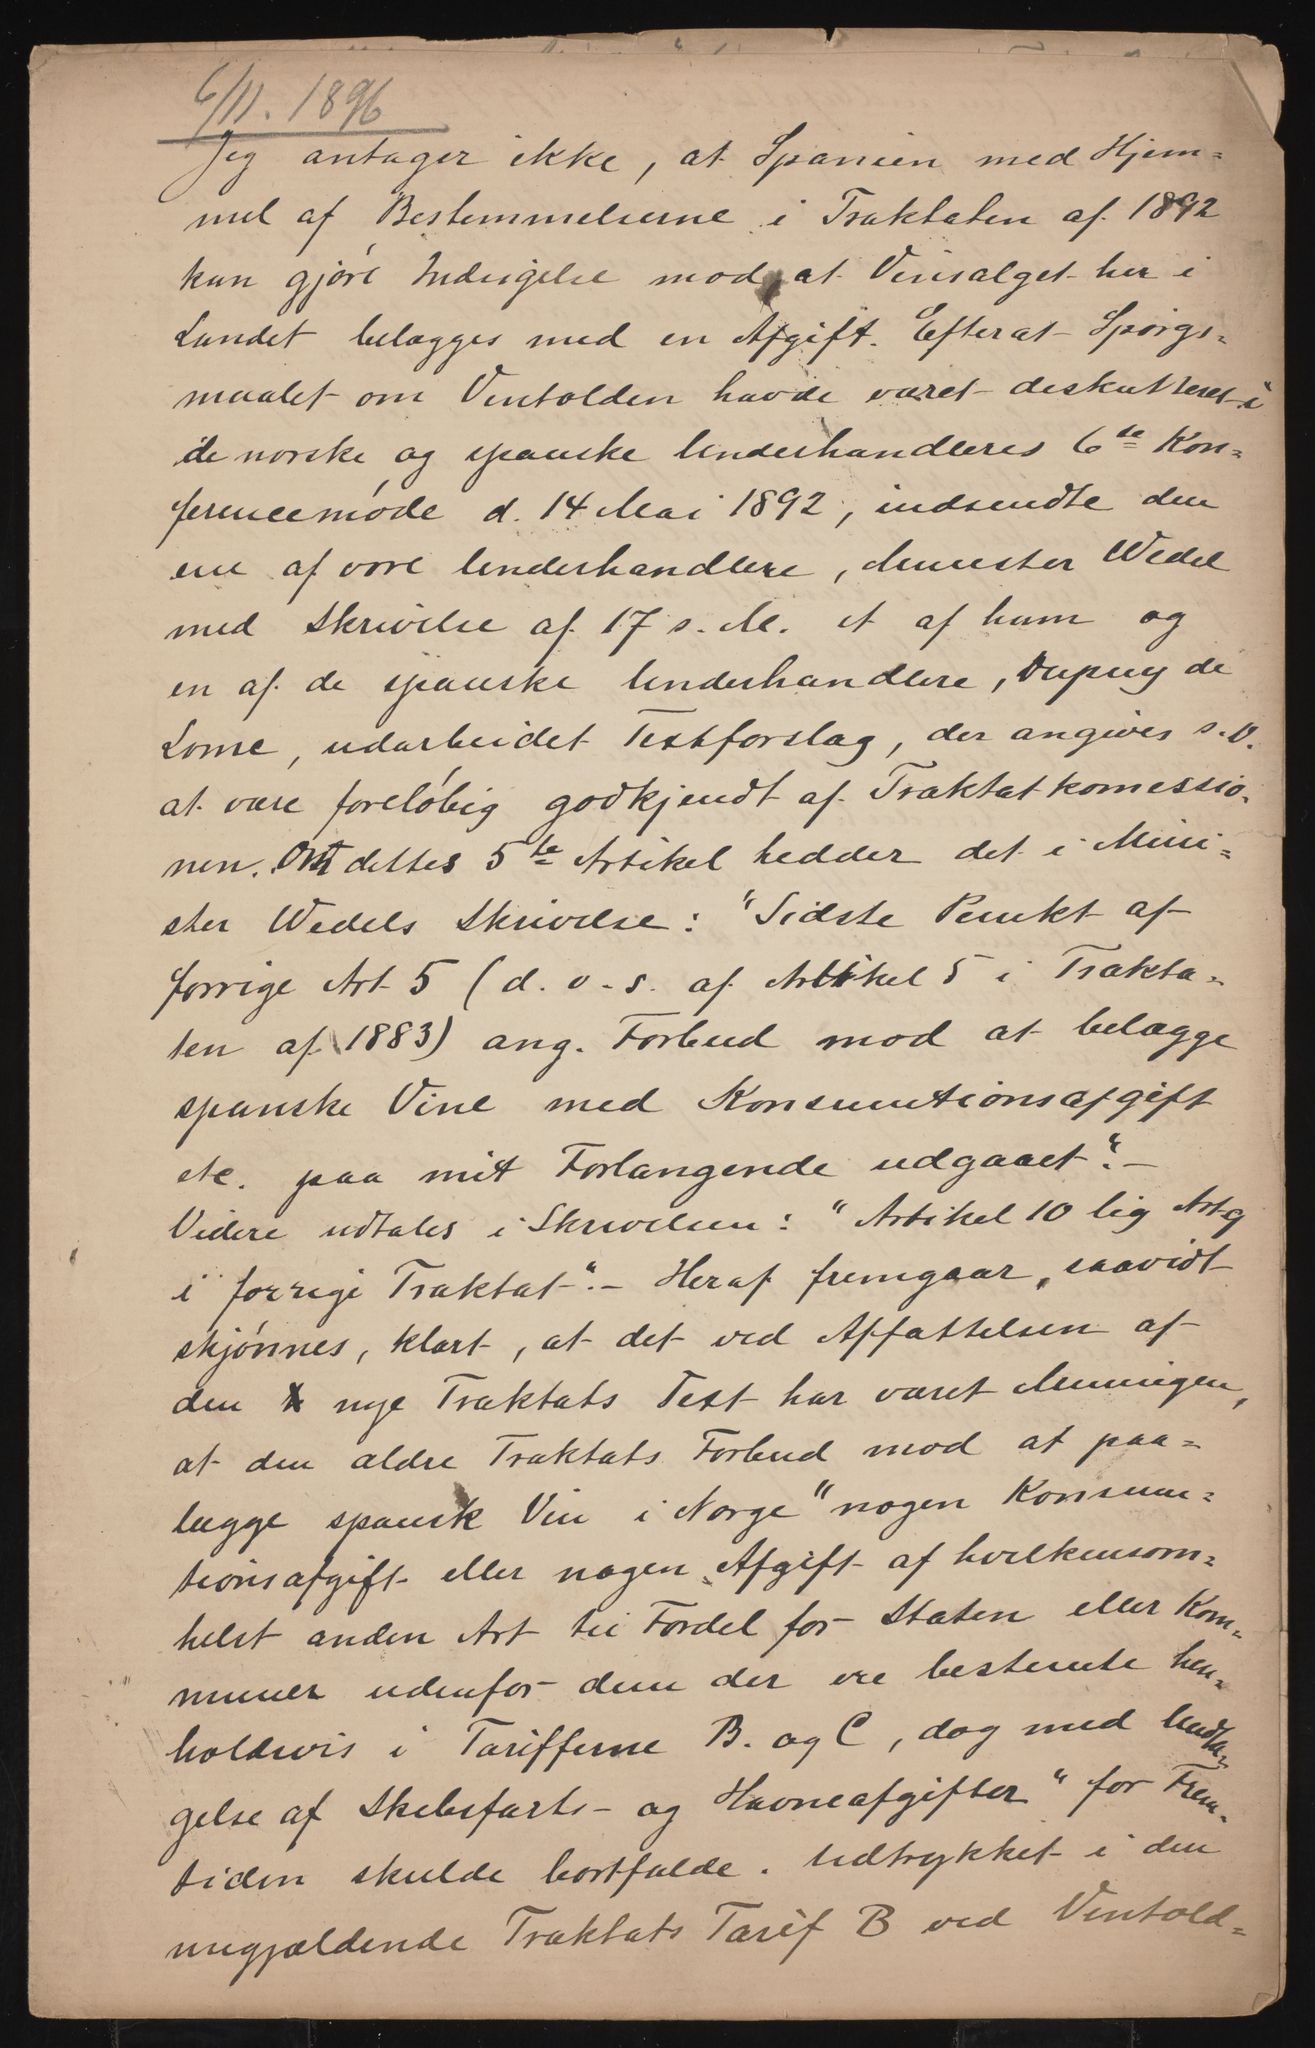 6/11. 1896
Jeg antager ikke, at Spanien med Hjem-
mel af Bestemmelserne i Traktaten af 1892
kan gjøre Indsigelse mod, at Vinsalget her i
Landet belægges med en Afgift. Efterat Spørgs-
maalet om Vintolden havde været diskutteret i
de norske og spanske Underhandleres 6te Kon-
ferencemøde d. 14 Mai 1892, indsendte den
ene af vore Underhandlere, Minister Wedel
med Skrivelse af 17 s. M. et af ham og
en af de spanske Underhandlere, Dupuy de
Lome, udarbeidet Textforslag, der angives s.D.
at være foreløbig godkjendt af Traktatkomissio-
nen. Om dettes 5te Artikel hedder det i Mini-
ster Wedels Skrivelse: "Sidste Punkt af
forrige Art 5 (d. v. s. af Artikel 5 i Trakta-
ten af 1883) ang. Forbud mod at belægge
spanske Vine med Konsumtionsafgift
etc. paa mit Forlangende udgaaet". -
Videre udtales i Skrivelsen: "Artikel 10 lig Art 9
i forrige Traktat". - Heraf fremgaar, saavidt
skjønnes, klart, at det ved Affattelsen af
den nye Traktats Text har været Meningen,
at den ældre Traktats Forbud mod at paa-
lægge spansk Vin i Norge "nogen Konsum-
tionsafgift eller nogen Afgift af hvilkensom-
helst anden Art til Fordel for Staten eller Kom-
muner udenfor dem der ere bestemte hen-
holdsvis i Tarifferne B. og C, dog med Undta-
gelse af Skibsfarts- og Havneafgifter" for Frem-
tiden skulde bortfalde. Udtrykket i den
nugjældende Traktats Tarif B ved Vintold-